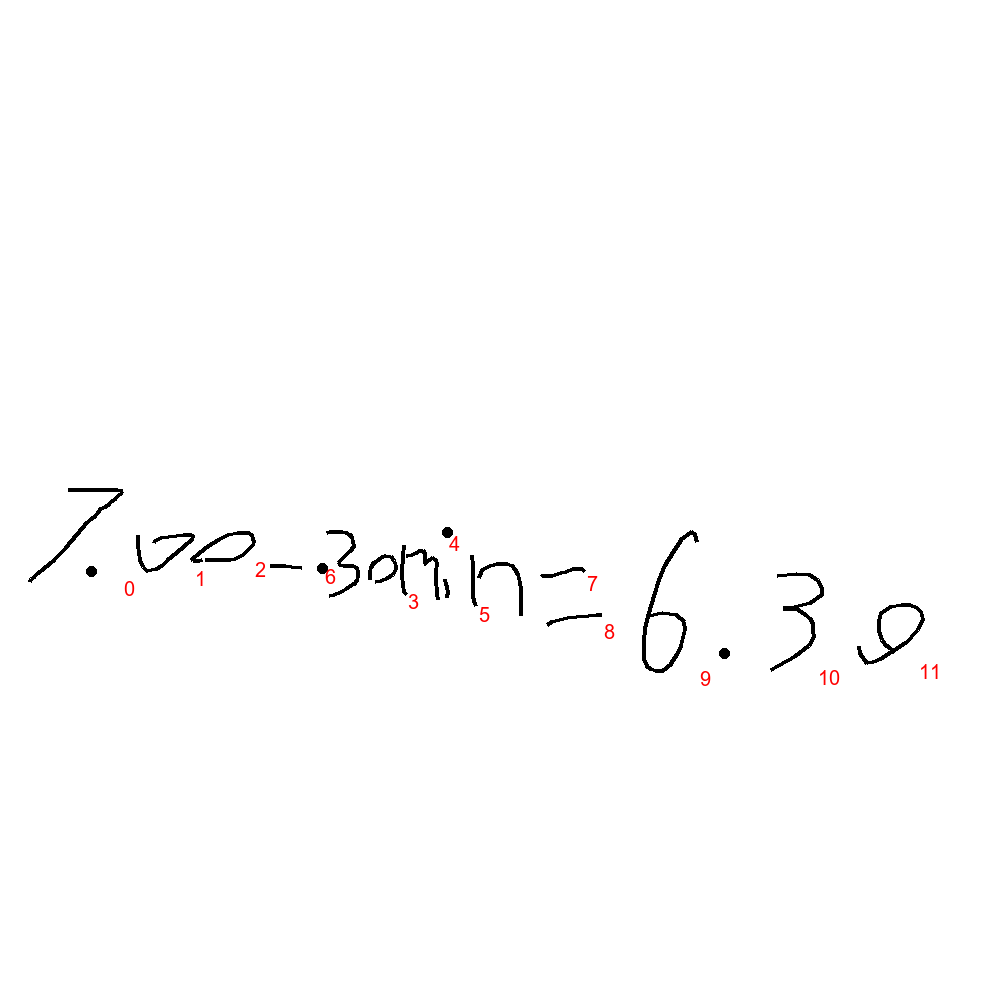 7.00-30min=6.30
0 1 2 6 3 4 5 7 8 9 10 11